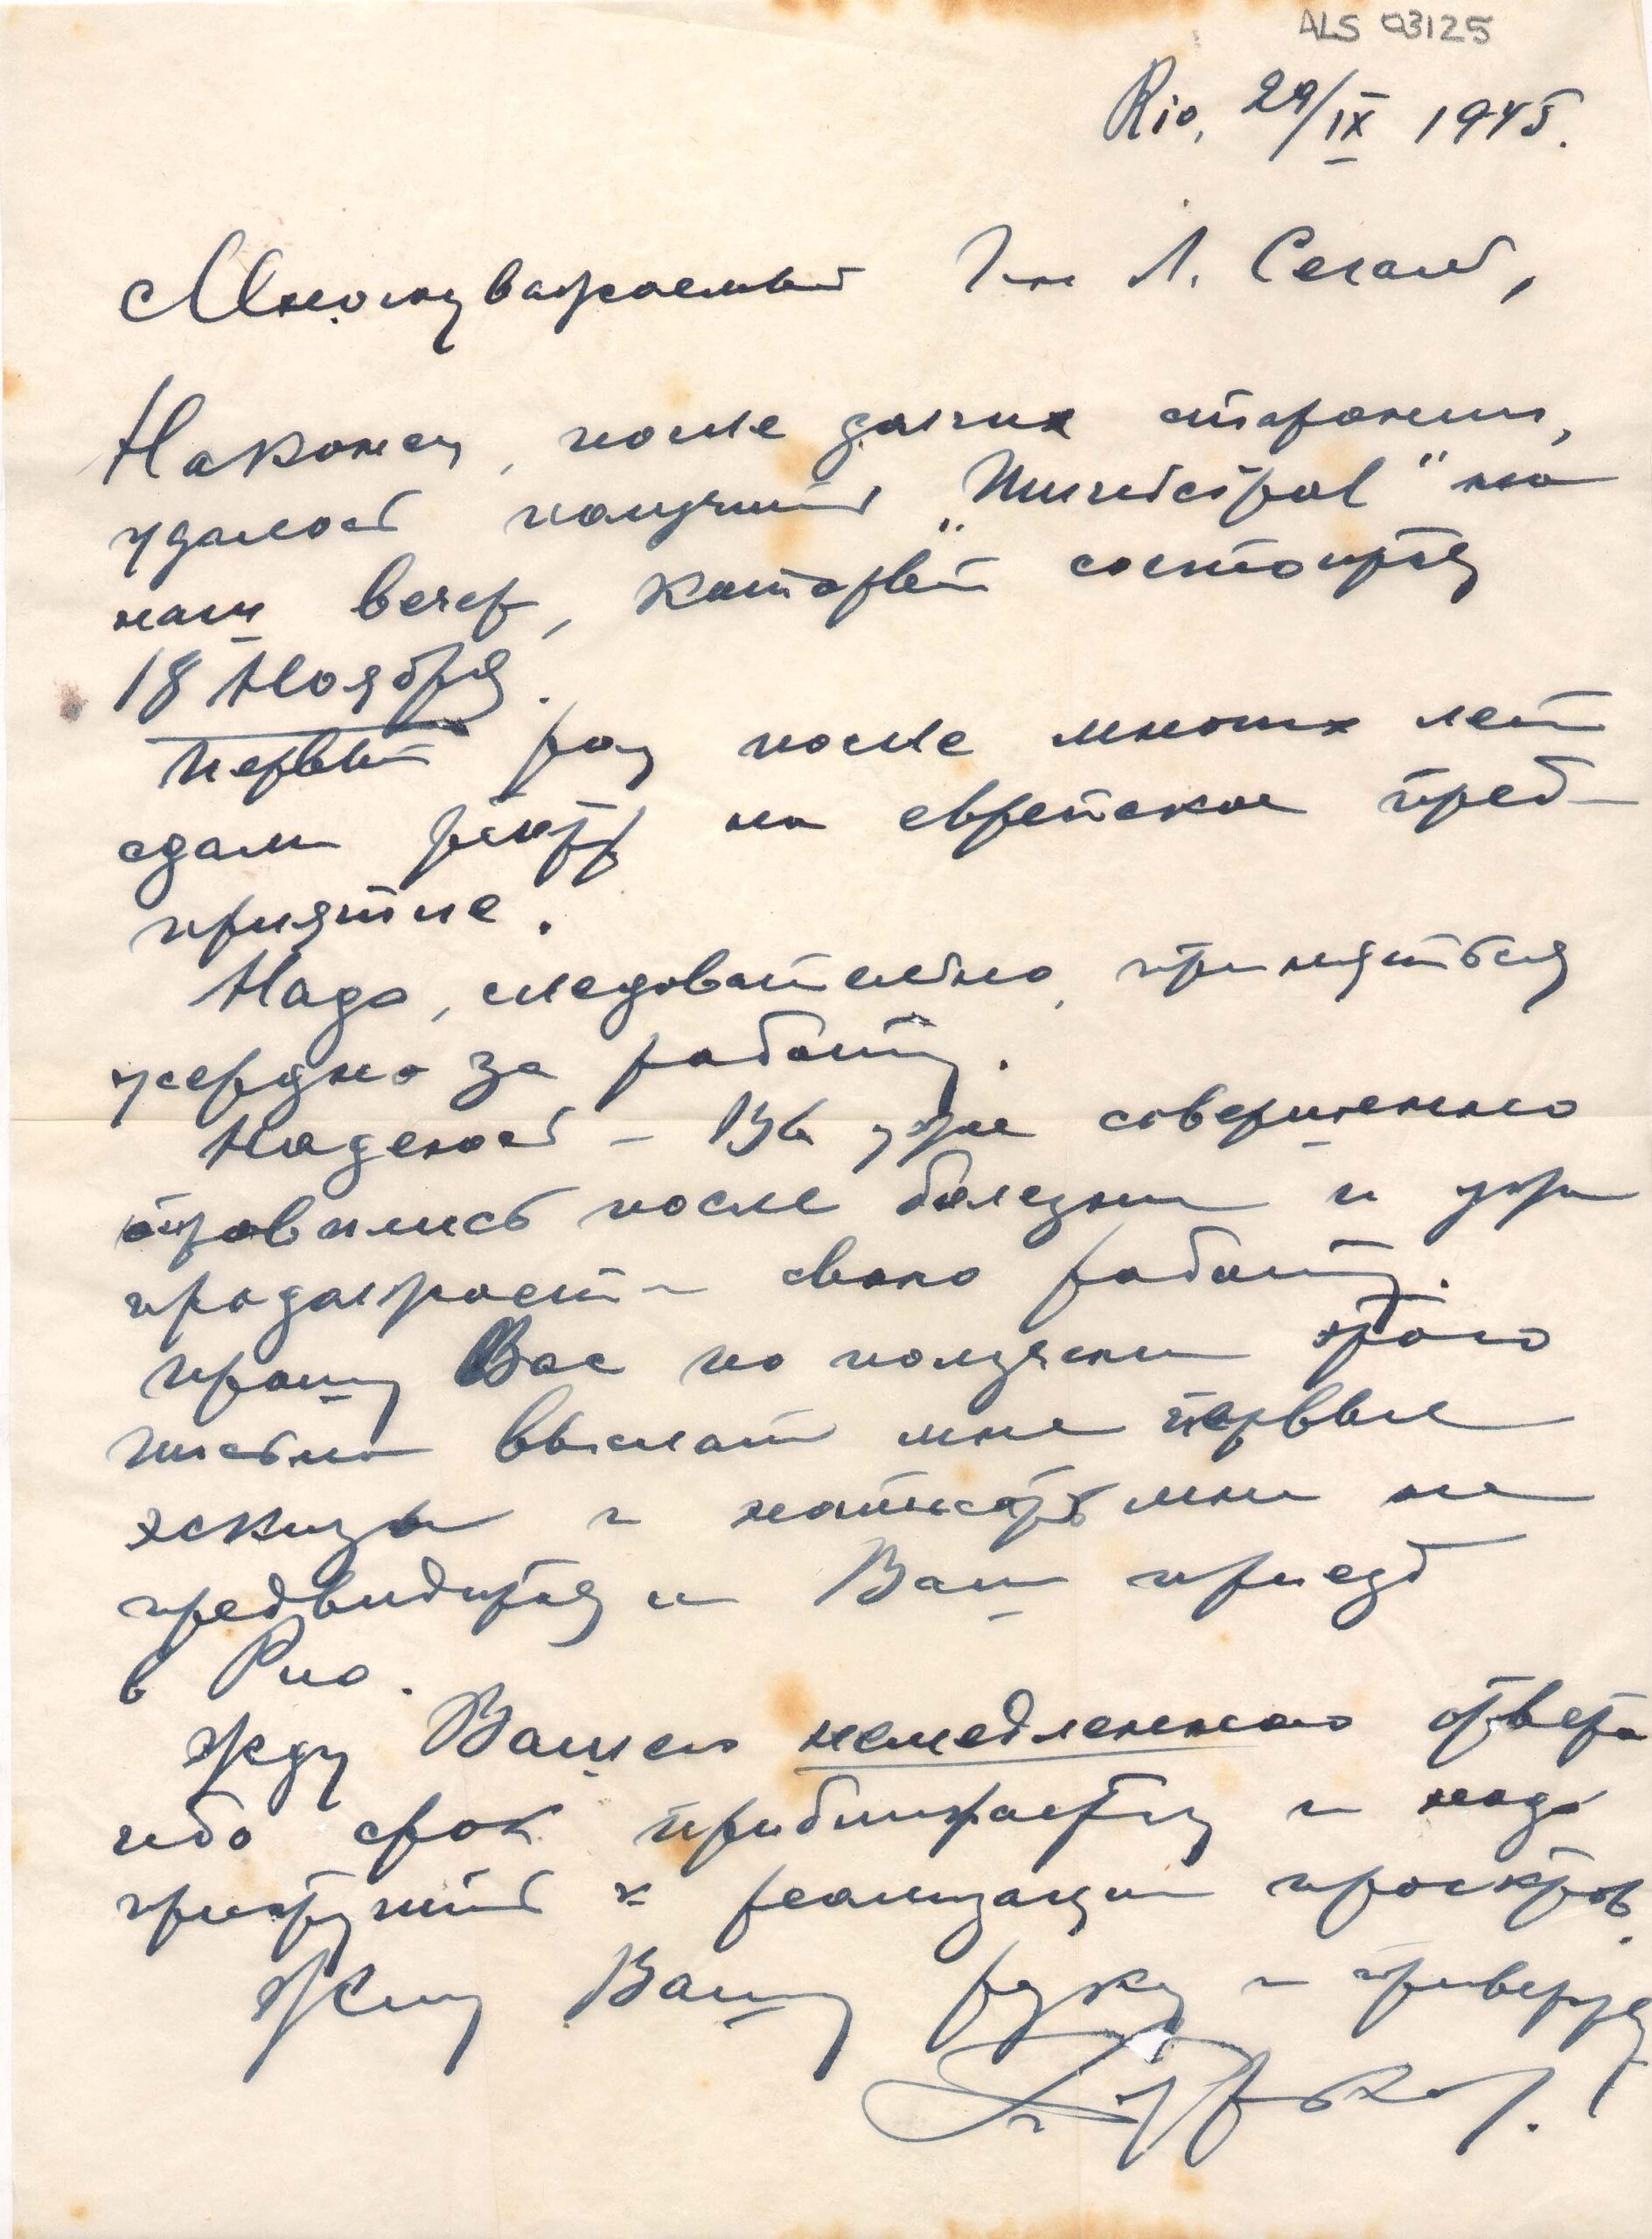 ALS 03125
Rio, 29/IX 1945.
Многоуважаемый Г-н Л. Сегалъ,
Наконец, после долгих стараний,
удалось получить „Municipal" на
наш вечер, который состоится
18 Ноября.
Первый раз после многих лет
сдали театр на еврейское пред-
приятие.
Надо, следовательно, приняться
усердно за работу.
Надеюсь – Вы уже совершенно
оправились после болезни и уже
продолжаете свою работу.
Прошу Вас по получении этого
письма выслать мне первые
эскизы и написать мне не
предвидится и Ваш приезд
в Рио.
Жду Вашего немедленного ответа
ибо срок приближается и надо
приступить к реализации проектов.
Жму Вашу руку и